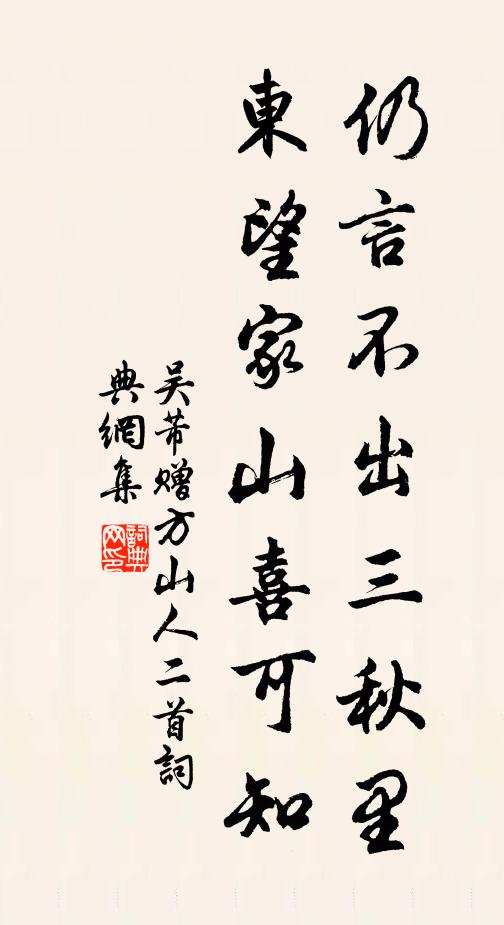 仍言不出三秋里
東望家山喜可知
吴芾贈方山人二首詞
典網集
詞典
网印